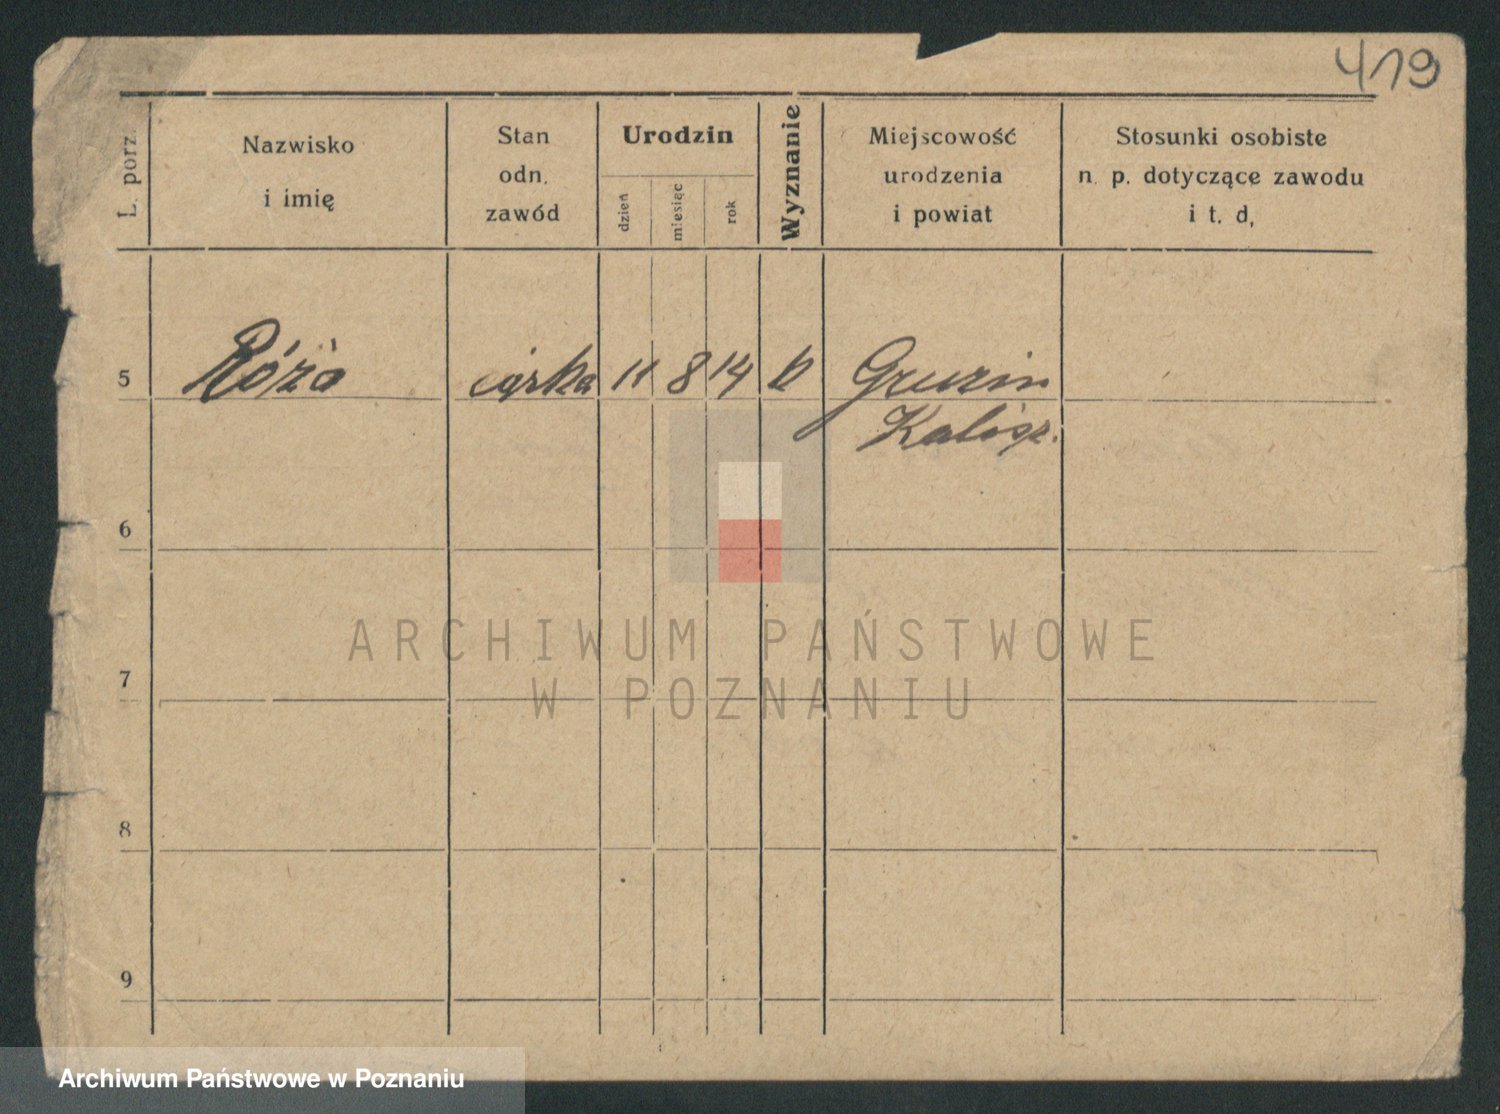 419
L. porz.
Nazwisko
i imię
Stan
odn.
zawód
Urodzin
dzień
miesiąc
rok
Wyznanie
Miejscowość
urodzenia
i powiat
Stosunki osobiste
n. p. dotyczące zawodu
i t. d,
5 Róża córka 11 8 14 k Gruzin
Kalisz.
6
7
8
9
ARCHIWUM PAŃSTWOWE
W POZNANIU
Archiwum Państwowe w Poznaniu